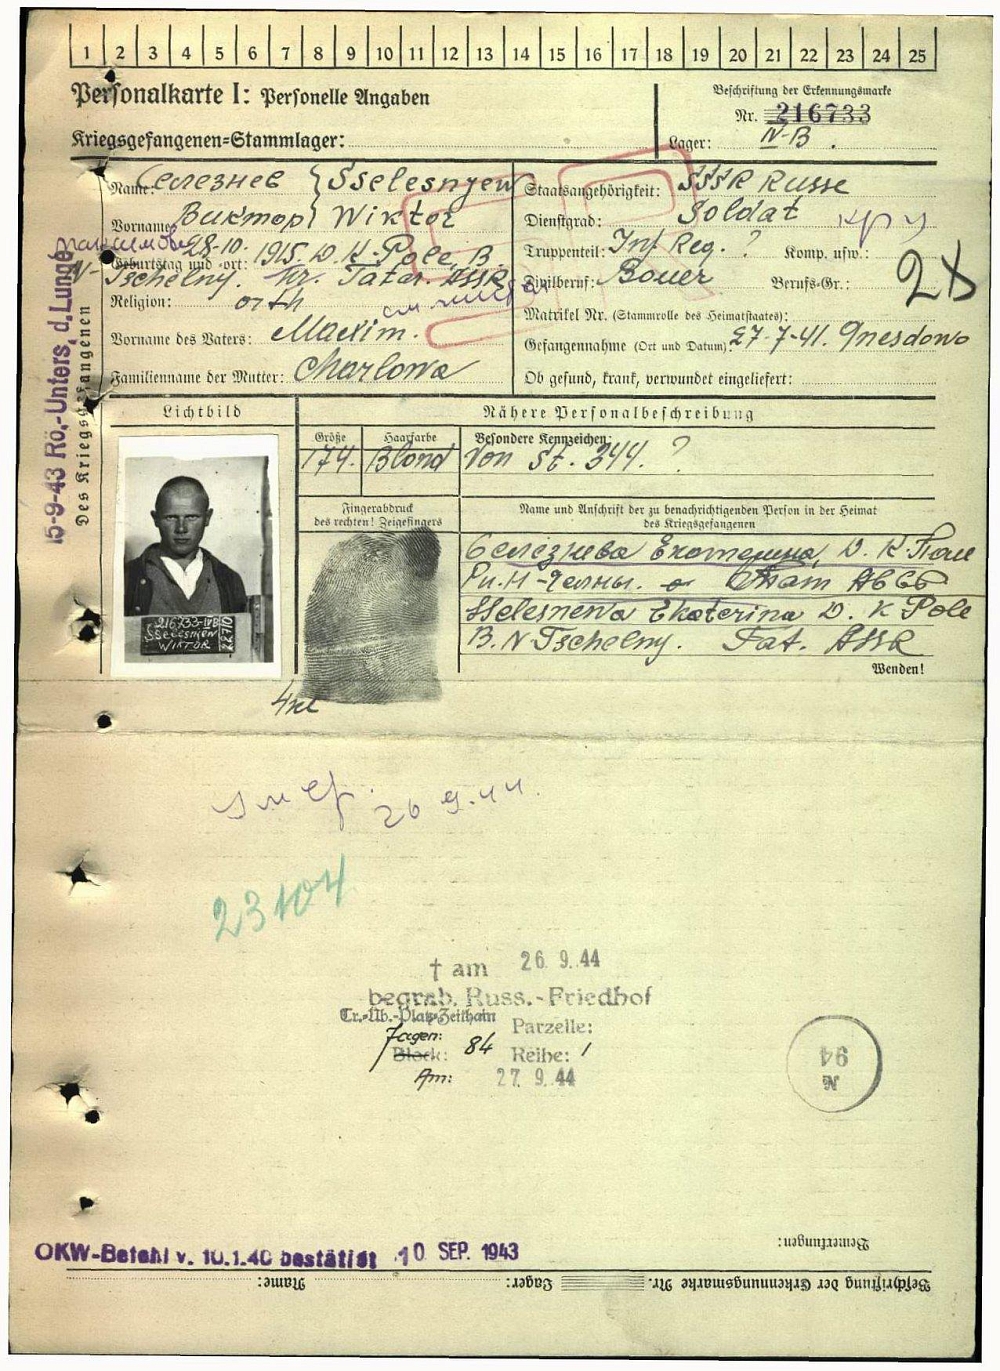 1 2 3 4 5 6 7 8 9 10 11 12 13 14 15 16 17 18 19 20 21 22 23 24 25
Personalkarte I: Personelle Angaben
Kriegsgefangenen-Stammlager:
Beschriftung der Erkennungsmarke
Nr. 216733
Lager: IV-B.
Name: Селезнев } Sselesnjew
Vorname: Виктор } Wiktor
Geburtstag und -ort: 28-10. 1915. D. K-Pole, B.
N-Tschelny. Kr. Tatar. ASSR
Religion: orth
Vorname des Vaters: Maxim.
Familienname der Mutter: Charlowa
Staatsangehörigkeit: SSSR Russe
Dienstgrad: Soldat
Truppenteil: Inf Reg. ? Komp. usw.:
Zivilberuf: Bauer Berufs-Gr.:
Matrikel Nr. (Stammrolle des Heimatstaates):
Gefangennahme (Ort und Datum): 27-7-41. Gnesdowo
Ob gesund, krank, verwundet eingeliefert:
15-9-43 Rö.-Unters. d. Lunge
Des Kriegsgefangenen
Lichtbild
Nähere Personalbeschreibung
Größe Haarfarbe Besondere Kennzeichen:
174. Blond Von St. 344. ?
Fingerabdruck
des rechten! Zeigefingers
Name und Anschrift der zu benachrichtigenden Person in der Heimat
des Kriegsgefangenen
Селезнева Екатерина, D. К. Поле
Рн. Н-Челны. Татт АССР
Sselesnewa Ekaterina D. K Pole
B. N Tschelny. Tat. ASSR
Wenden!
216733-IVB
SSELESNJEW
WIKTOR
умер. 26 9.44.
23104
† am 26. 9. 44
begrab. Russ.-Friedhof
Tr.-Üb.-Platz Zeithain
Jagen: 84 Parzelle:
Block: Reihe: 1
Am: 27. 9. 44
№ 94
OKW-Befehl v. 10.1.40 bestätigt 10. SEP. 1943
Bemerkungen:
Beschriftung der Erkennungsmarke Nr. Lager: Name: